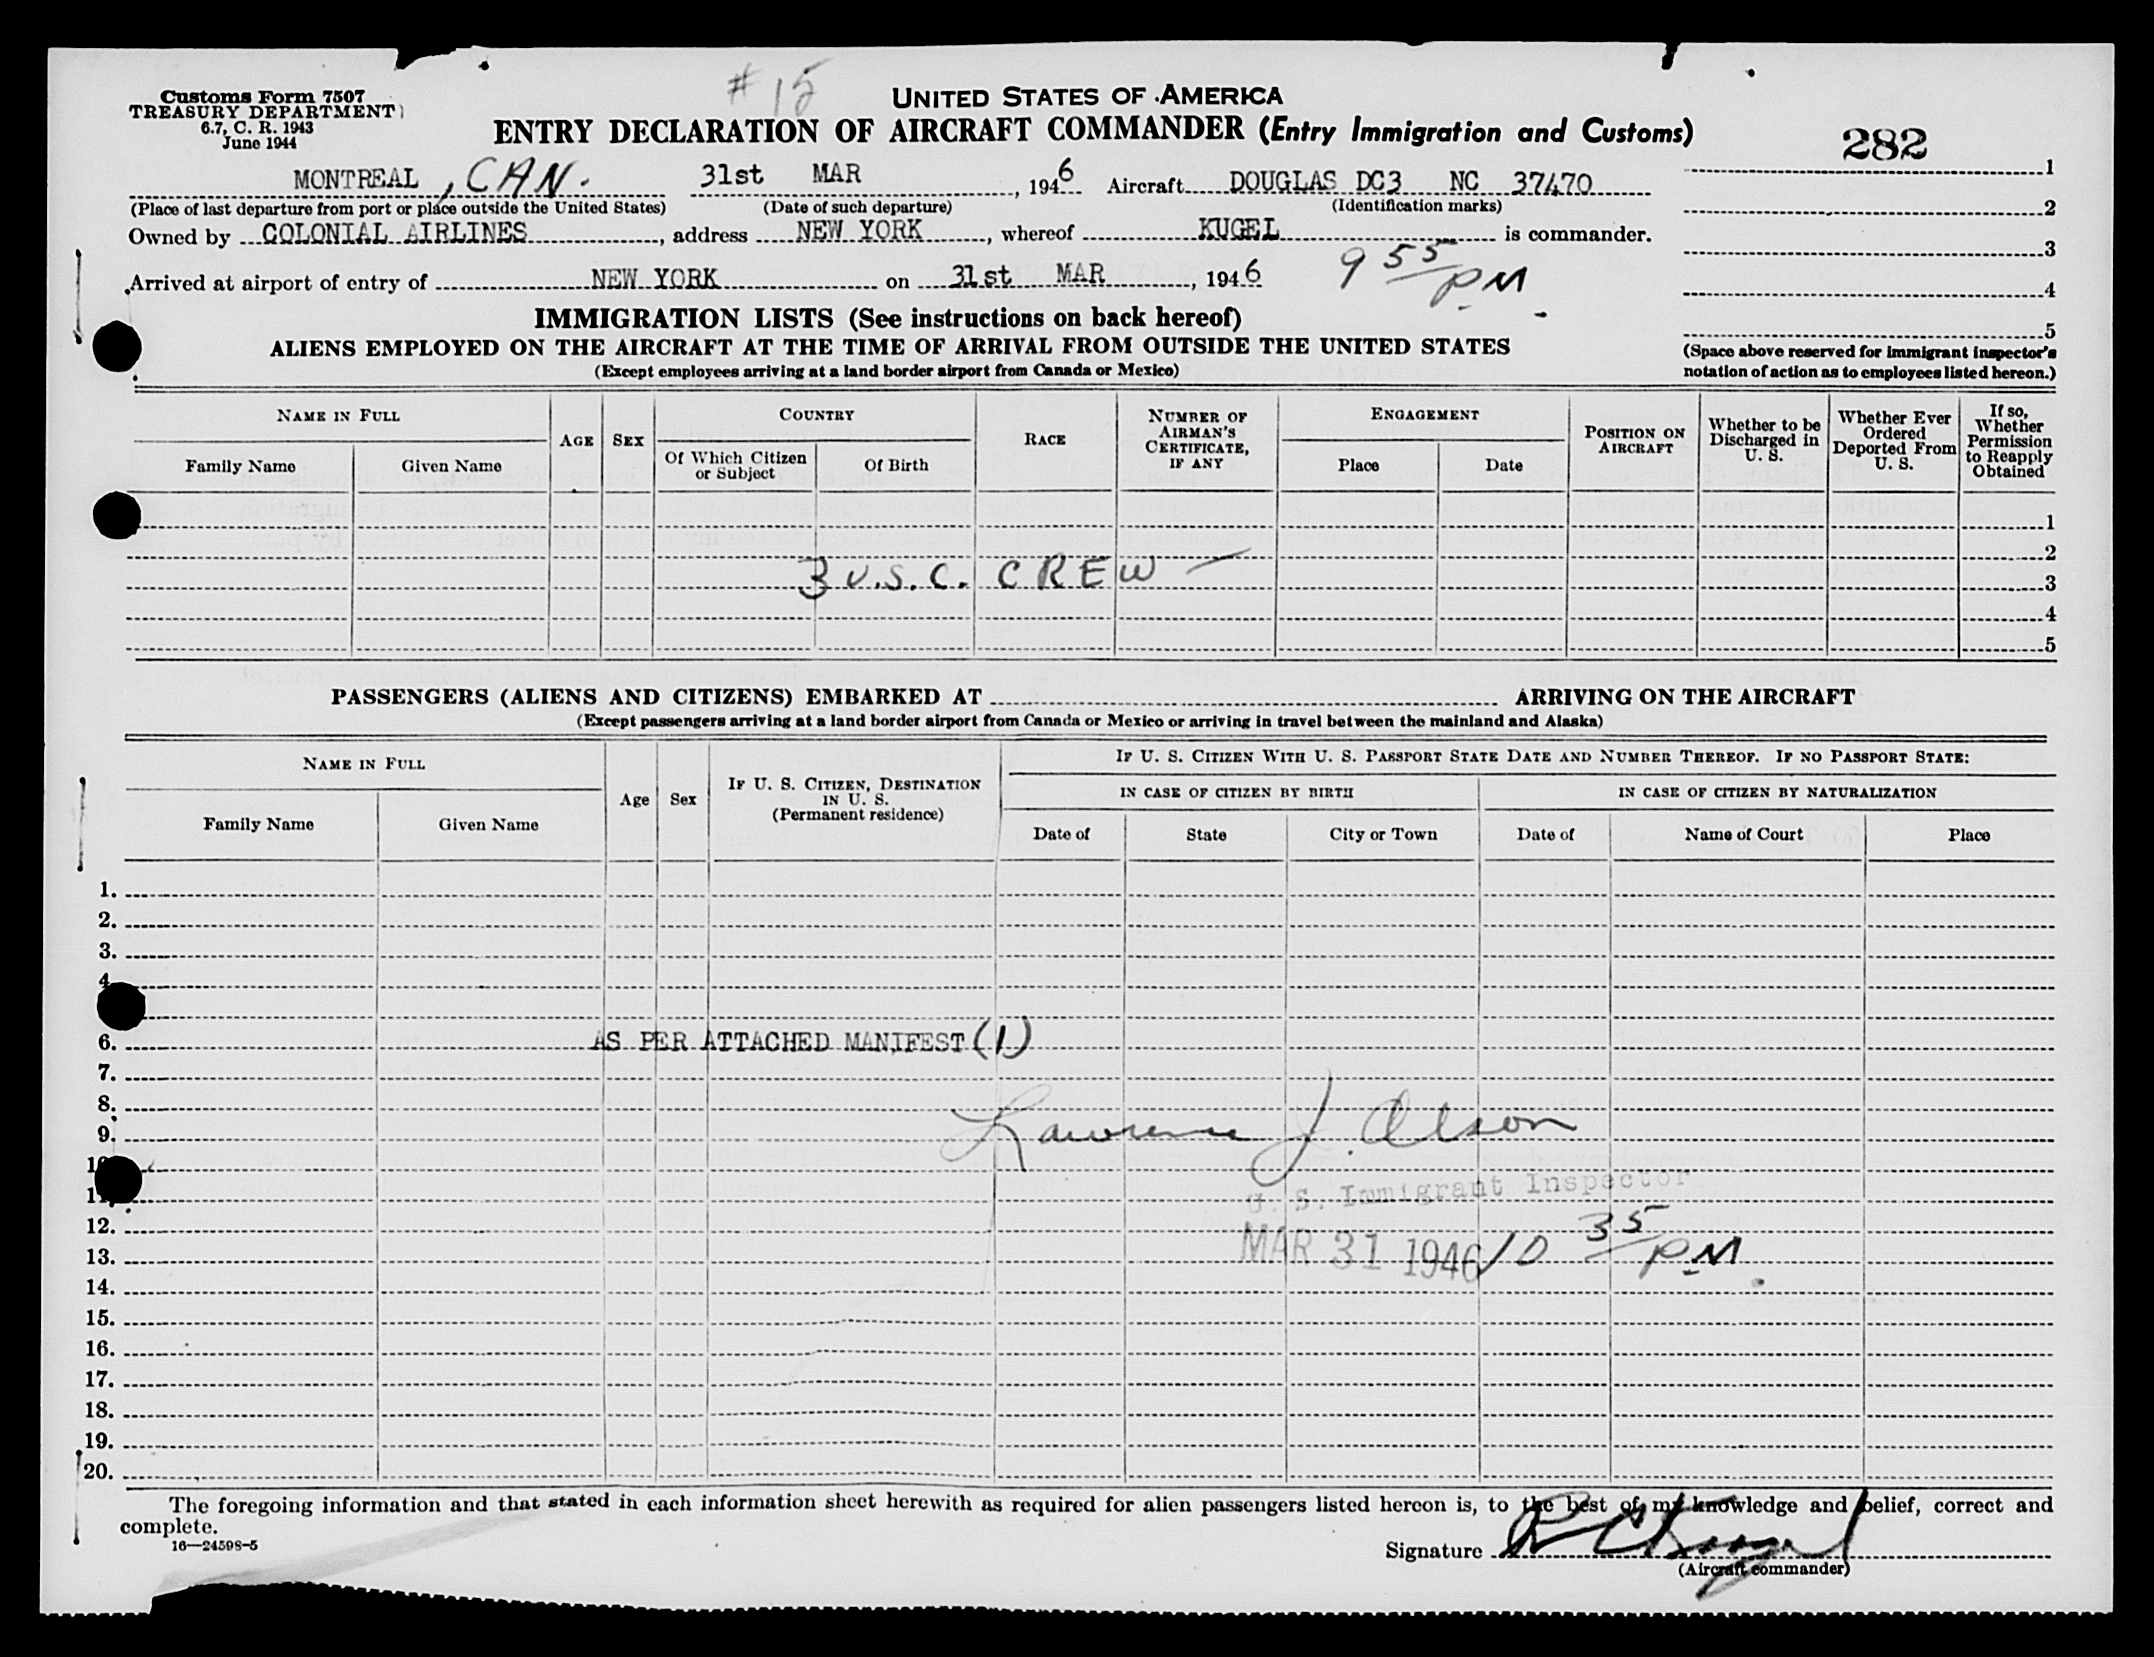 # 15
Customs Form 7507
TREASURY DEPARTMENT
6.7, C. R. 1943
June 1944
UNITED STATES OF AMERICA
ENTRY DECLARATION OF AIRCRAFT COMMANDER (Entry Immigration and Customs)
282
MONTREAL, CAN. 31st MAR, 1946 Aircraft DOUGLAS DC3 NC 37470
(Place of last departure from port or place outside the United States) (Date of such departure) (Identification marks)
Owned by COLONIAL AIRLINES, address NEW YORK, whereof KUGEL is commander.
Arrived at airport of entry of NEW YORK on 31st MAR, 1946 9 55 PM.
1
2
3
4
5
(Space above reserved for immigrant inspector's
notation of action as to employees listed hereon.)
IMMIGRATION LISTS (See instructions on back hereof)
ALIENS EMPLOYED ON THE AIRCRAFT AT THE TIME OF ARRIVAL FROM OUTSIDE THE UNITED STATES
(Except employees arriving at a land border airport from Canada or Mexico)
NAME IN FULL
Family Name
Given Name
AGE
SEX
COUNTRY
Of Which Citizen
or Subject
Of Birth
RACE
NUMBER OF
AIRMAN'S
CERTIFICATE,
IF ANY
ENGAGEMENT
Place
Date
POSITION ON
AIRCRAFT
Whether to be
Discharged in
U. S.
Whether Ever
Ordered
Deported From
U. S.
If so,
Whether
Permission
to Reapply
Obtained
1
2
3 U.S.C. CREW —
3
4
5
PASSENGERS (ALIENS AND CITIZENS) EMBARKED AT ARRIVING ON THE AIRCRAFT
(Except passengers arriving at a land border airport from Canada or Mexico or arriving in travel between the mainland and Alaska)
NAME IN FULL
Family Name
Given Name
Age
Sex
IF U. S. CITIZEN, DESTINATION
IN U. S.
(Permanent residence)
IF U. S. CITIZEN WITH U. S. PASSPORT STATE DATE AND NUMBER THEREOF. IF NO PASSPORT STATE:
IN CASE OF CITIZEN BY BIRTH
Date of
State
City or Town
IN CASE OF CITIZEN BY NATURALIZATION
Date of
Name of Court
Place
1.
2.
3.
4
6. AS PER ATTACHED MANIFEST (1)
7.
8.
9. Lawrence J. Olson
10
11. U. S. Immigrant Inspector
12.
13. MAR 31 1946 10 35 PM.
14.
15.
16.
17.
18.
19.
20.
The foregoing information and that stated in each information sheet herewith as required for alien passengers listed hereon is, to the best of my knowledge and belief, correct and
complete.
16—24598-5
Signature
(Aircraft commander)